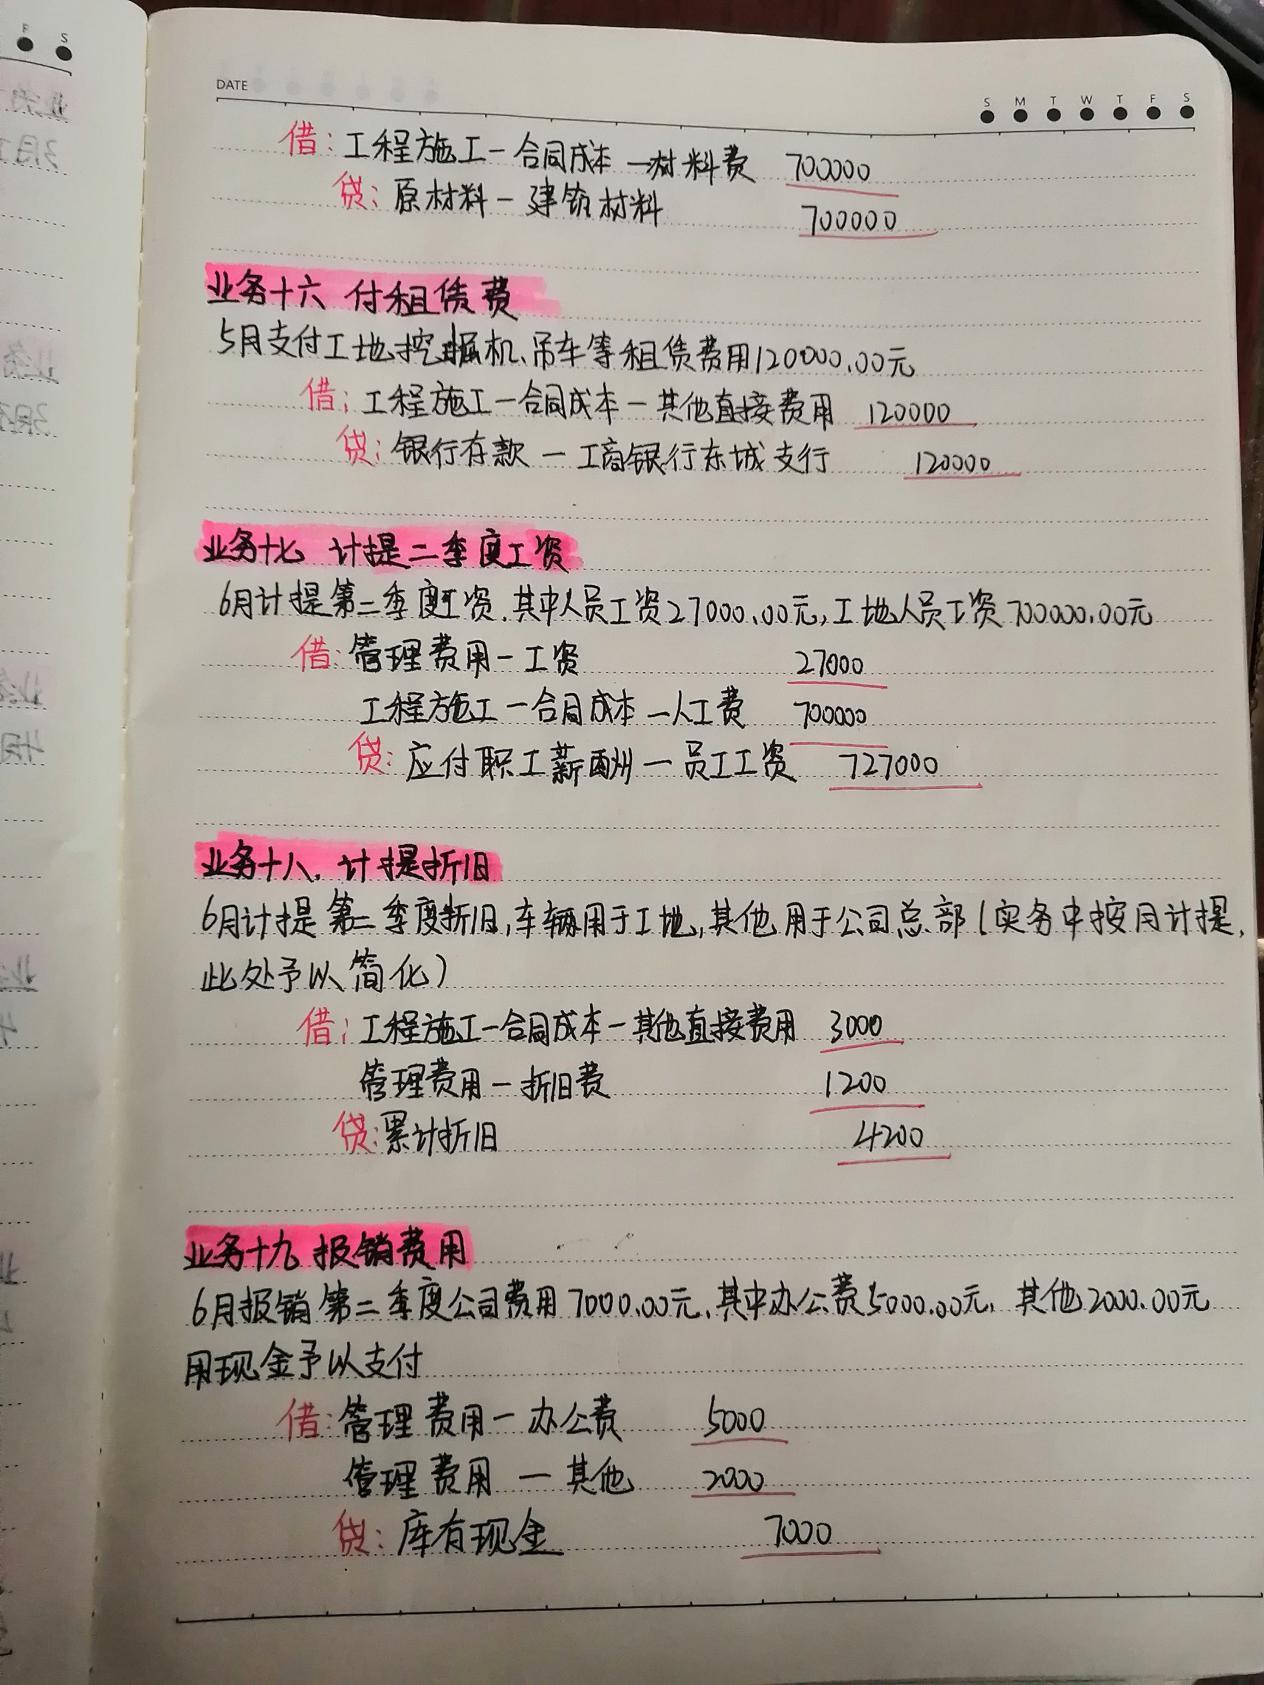 DATE
S M T W T F S
借：工程施工—合同成本—材料费 700000
贷：原材料—建筑材料 700000
业务十六 付租赁费
5月支付工地挖掘机、吊车等租赁费用120000.00元
借：工程施工—合同成本—其他直接费用 120000
贷：银行存款—工商银行东城支行 120000
业务十七 计提二季度工资
6月计提第二季度工资.其中人员工资27000.00元,工地人员工资700000.00元
借：管理费用—工资 27000
工程施工—合同成本—人工费 700000
贷：应付职工薪酬—员工工资 727000
业务十八、计提折旧
6月计提第二季度折旧,车辆用于工地,其他用于公司总部(实务中按月计提,
此处予以简化)
借：工程施工—合同成本—其他直接费用 3000
管理费用—折旧费 1200
贷：累计折旧 4200
业务十九 报销费用
6月报销第二季度公司费用7000.00元.其中办公费5000.00元, 其他2000.00元
用现金予以支付
借：管理费用—办公费 5000
管理费用—其他 2000
贷：库存现金 7000